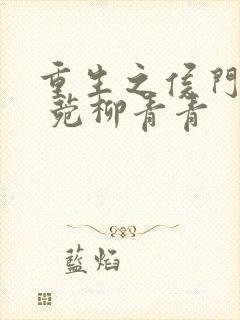 重生之侯門
菀柳青青
藍焰